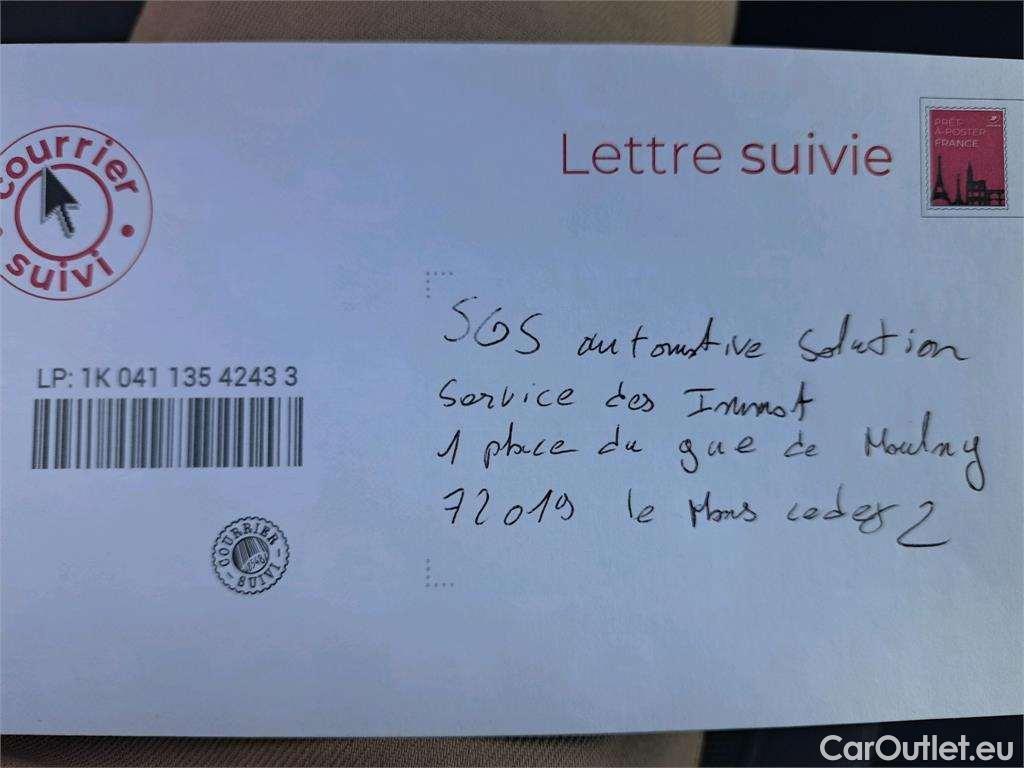 courrier
suivi
Lettre suivie
PRÊT-
À-POSTER
FRANCE
LP: 1K 041 135 4243 3
SGS automotive Solution
Service des Immat
1 place du gue de Maulny
72019 le Mans cedex 2
COURRIER
SUIVI
CarOutlet.eu